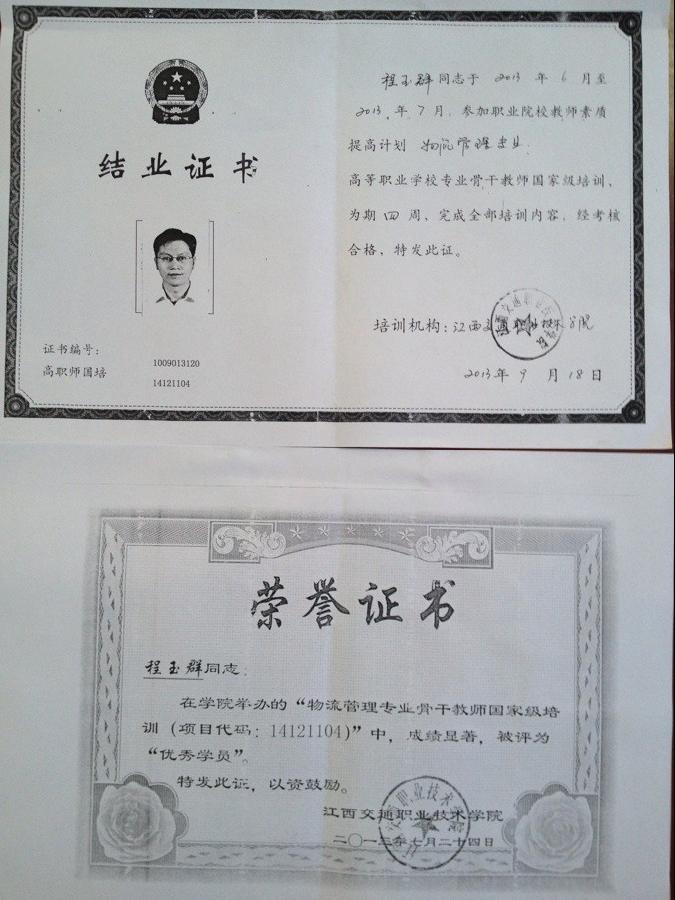 结业证书
证书编号：
高职师国培
1009013120
14121104
程玉群同志于 2013 年 6 月至
2013 年 7 月，参加职业院校教师素质
提高计划 物流管理专业
高等职业学校专业骨干教师国家级培训，
为期 四 周、完成全部培训内容，经考核
合格，特发此证。
培训机构：江西交通职业技术学院
2013 年 9 月 18 日
荣誉证书
程玉群同志：
在学院举办的“物流管理专业骨干教师国家级培
训（项目代码：14121104)”中，成绩显著，被评为
“优秀学员”。
特发此证，以资鼓励。
江西交通职业技术学院
二〇一三年七月二十四日